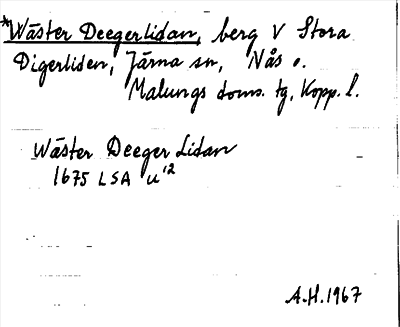 *Wäster Deegerlidan, berg V Stora
Digerliden, Järna sn, Nås o.
Malungs doms. tg, Kopp. l.
Wäster Deeger Lidan
1675 LSA U¹²
A.H. 1967